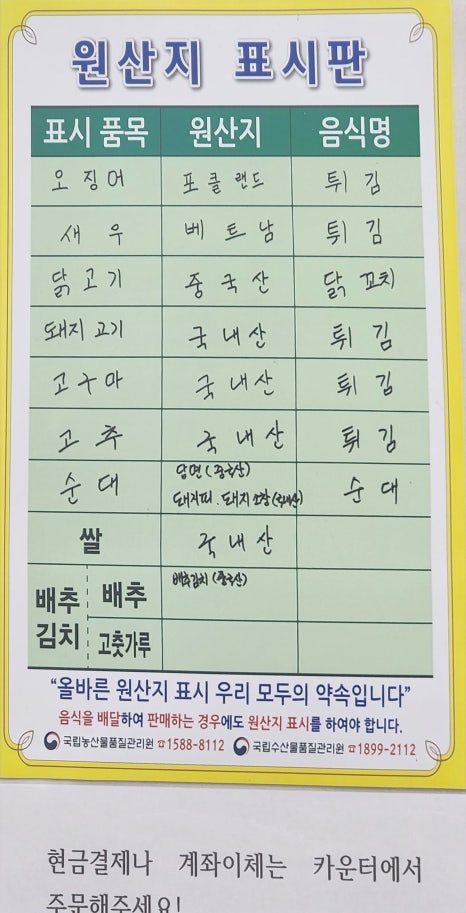 원산지 표시판
표시 품목 원산지 음식명
오징어 포클랜드 튀김
새우 베트남 튀김
닭고기 중국산 닭꼬치
돼지고기 국내산 튀김
고구마 국내산 튀김
고추 국내산 튀김
당면(중국산)
순대 돼지피. 돼지소창(국내산) 순대
쌀 국내산
배추김치(중국산)
배추김치 배추
고춧가루
“올바른 원산지 표시 우리 모두의 약속입니다”
음식을 배달하여 판매하는 경우에도 원산지 표시를 하여야 합니다.
국립농산물품질관리원 ☎1588-8112 국립수산물품질관리원 ☎1899-2112
현금결제나 계좌이체는 카운터에서
주문해주세요!